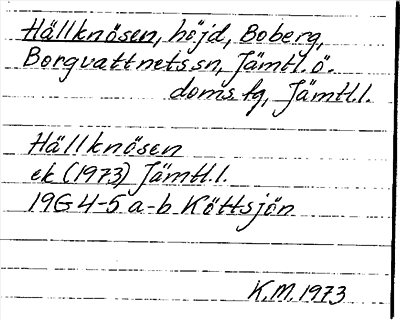 Hällknösen, höjd, Boberg,
Borgvattnets sn, Jämtl. ö.
doms. fg, Jämtl. l.
Hällknösen
ek (1973) Jämtl. l.
19G 4-5 a-b Köttsjön
K.M. 1973